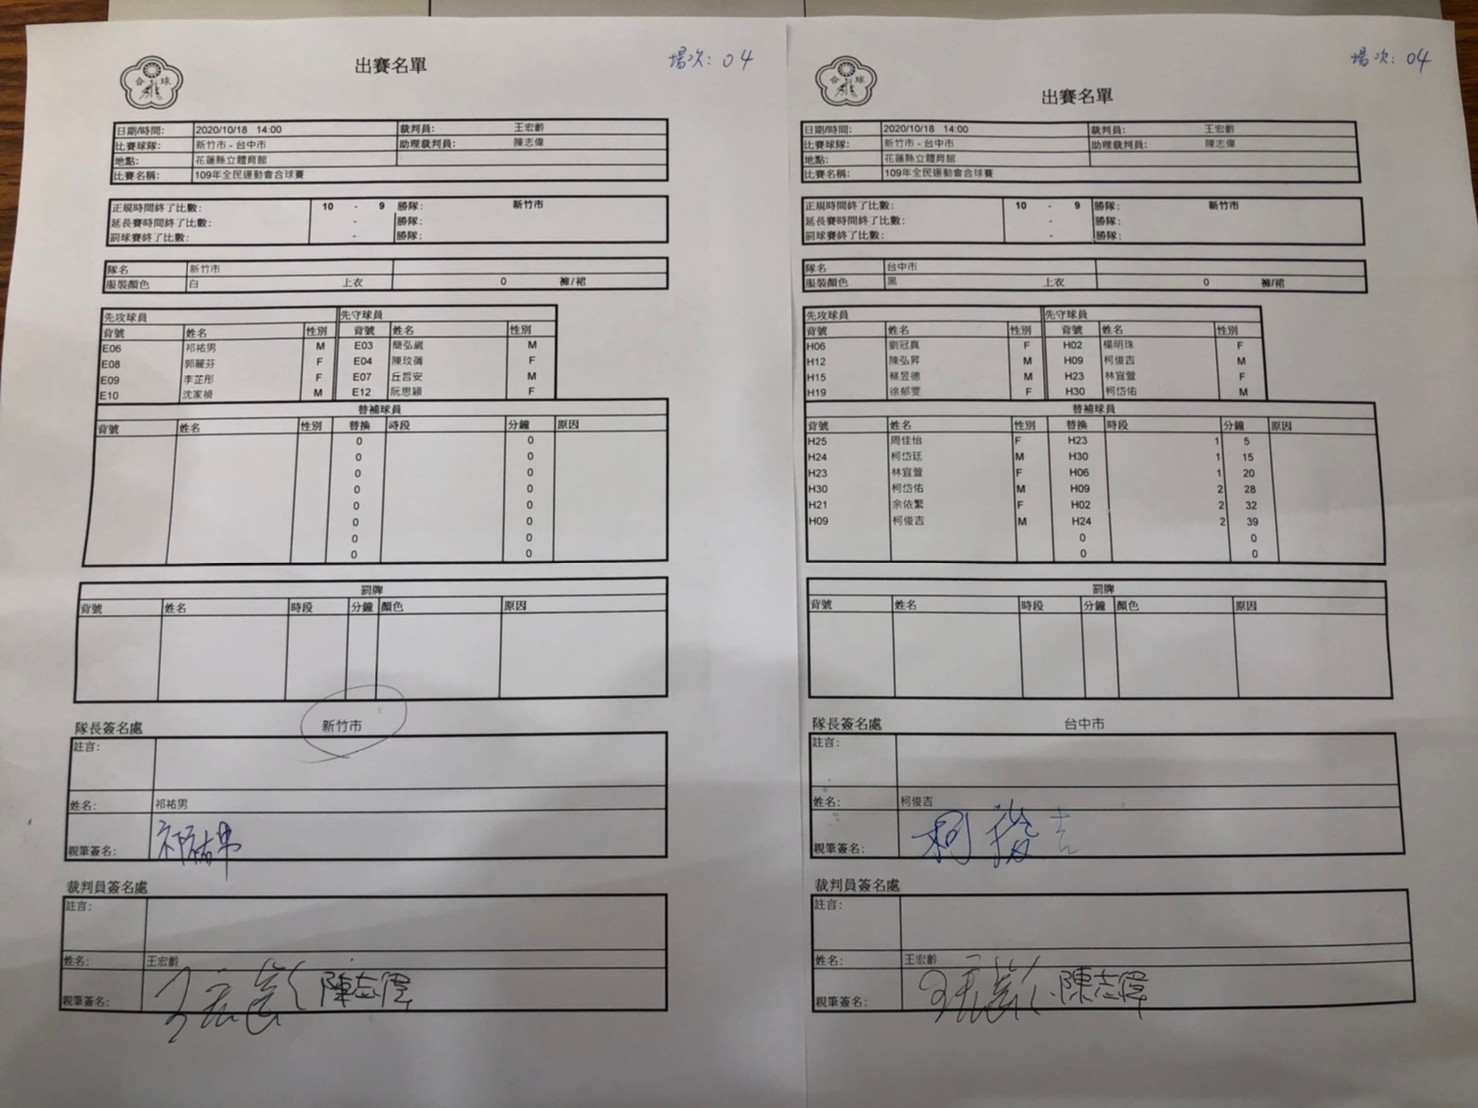 出賽名單
場次: 04
合球
日期/時間: 2020/10/18 14:00 裁判員: 王宏齡
比賽球隊: 新竹市 - 台中市 助理裁判員: 陳志偉
地點: 花蓮縣立體育館
比賽名稱: 109年全民運動會合球賽
正規時間終了比數: 10 - 9 勝隊: 新竹市
延長賽時間終了比數: - 勝隊:
罰球賽終了比數: - 勝隊:
隊名 新竹市
服裝顏色 白 上衣 0 褲/裙
先攻球員 先守球員
背號 姓名 性別 背號 姓名 性別
E06 祁祐男 M E03 簡弘 M
E08 郭麗芬 F E04 陳玟蒨 F
E09 李芷彤 F E07 丘哲安 M
E10 沈家禎 M E12 阮思穎 F
替補球員
背號 姓名 性別 替換 時段 分鐘 原因
0 0
0 0
0 0
0 0
0 0
0 0
0 0
0 0
罰牌
背號 姓名 時段 分鐘 顏色 原因
隊長簽名處 新竹市
註言:
姓名: 祁祐男
親筆簽名: 祁祐男
裁判員簽名處
註言:
姓名: 王宏齡
親筆簽名: 王宏齡 陳志偉
出賽名單
場次: 04
合球
日期/時間: 2020/10/18 14:00 裁判員: 王宏齡
比賽球隊: 新竹市 - 台中市 助理裁判員: 陳志偉
地點: 花蓮縣立體育館
比賽名稱: 109年全民運動會合球賽
正規時間終了比數: 10 - 9 勝隊: 新竹市
延長賽時間終了比數: - 勝隊:
罰球賽終了比數: - 勝隊:
隊名 台中市
服裝顏色 黑 上衣 0 褲/裙
先攻球員 先守球員
背號 姓名 性別 背號 姓名 性別
H06 劉冠真 F H02 楊明珠 F
H12 陳弘昇 M H09 柯俊吉 M
H15 蔡昱德 M H23 林宜萱 F
H19 徐郁雯 F H30 柯岱佑 M
替補球員
背號 姓名 性別 替換 時段 分鐘 原因
H25 周佳怡 F H23 1 5
H24 柯岱廷 M H30 1 15
H23 林宜萱 F H06 1 20
H30 柯岱佑 M H09 2 28
H21 余依繁 F H02 2 32
H09 柯俊吉 M H24 2 39
0 0
0 0
罰牌
背號 姓名 時段 分鐘 顏色 原因
隊長簽名處 台中市
註言:
姓名: 柯俊吉
親筆簽名: 柯俊吉
裁判員簽名處
註言:
姓名: 王宏齡
親筆簽名: 王宏齡 陳志偉